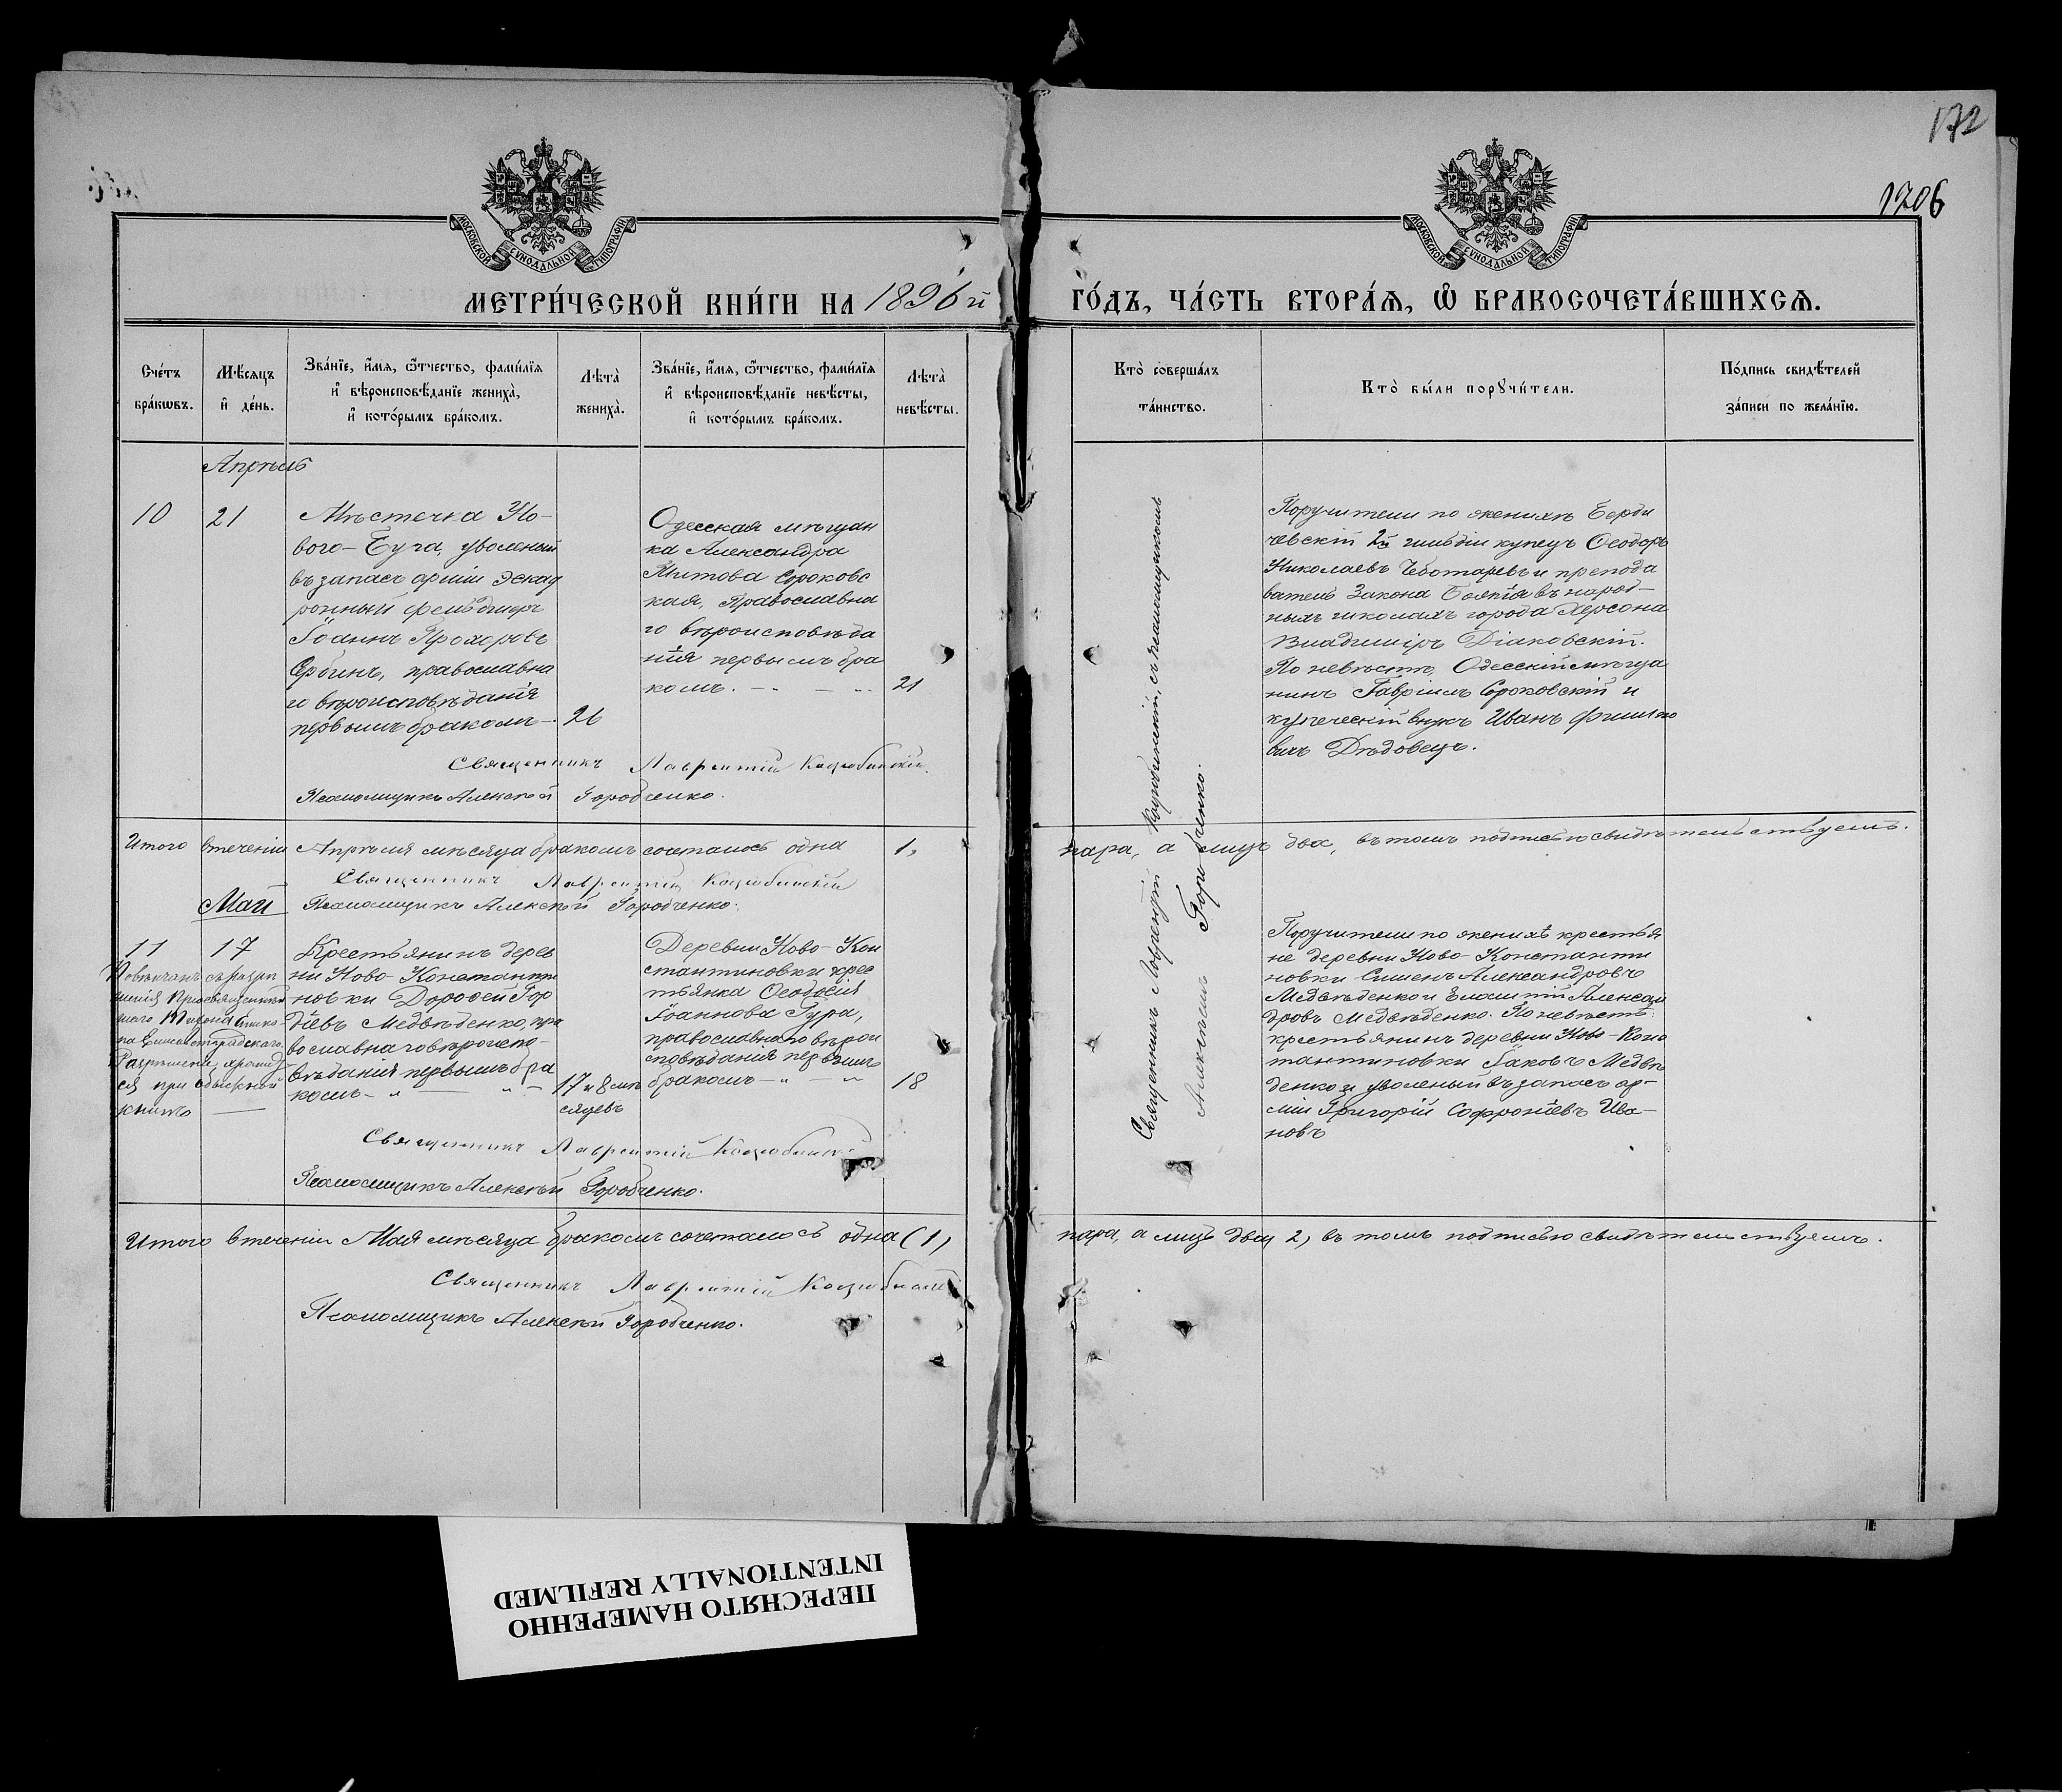 172
1706
МОСКОВСКОЙ СѴНОДАЛЬНОЙ ТИПОГРАФІИ
МОСКОВСКОЙ СѴНОДАЛЬНОЙ ТИПОГРАФІИ
МЕТРИ́ЧЕСКОЙ КНИ́ГИ НА 1896 й
ГО́ДЪ, ЧА́СТЬ ВТОРА́Ѧ, Ѡ҆ БРАКОСОЧЕТА́ВШИХСѦ.
Сче́тъ
бра́кѡвъ.
Мѣ́сяцъ
и҆ де́нь.
Зва́нїе, и҆́мя, ѻ҆́тчество, фами́лїя
и҆ вѣроисповѣ́данїе жениха̀,
и҆ кото́рымъ бра́комъ.
Лѣта̀
жениха̀.
Зва́нїе, и҆́мя, ѻ҆́тчество, фами́лїя
и҆ вѣроисповѣ́данїе невѣ́сты,
и҆ кото́рымъ бра́комъ.
Лѣта̀
невѣ́сты.
Кто̀ соверша́лъ
та́инство.
Кто̀ бы́ли порꙋчи́тели.
По́дпись свидѣ́телей
за́писи по жела́нїю.
Апрѣль
10
21
Мѣстечка Но-
вого-Буга, уволеный
въ запасъ арміи эскад
ронный фельдшеръ
Іоаннъ Прохоровъ
Ербинъ, православна
го вѣроисповѣданія
первымъ бракомъ -
26
Одесская мѣщан
ка Александра
Титова Сороковс
кая, Православна
го вѣроисповѣда
нія первымъ бра
комъ. -
21
Священникъ Лаврентій Коцюбинскій.
Псаломщикъ Алексѣй Горобченко.
Священникъ Лаврентій Коцюбинскій, съ псаломщикомъ
Алексѣемъ Горобченко.
Поручители по женихѣ Берди
чевскій 2й гильдіи купецъ Ѳеодоръ
Николаевъ Чеботаревъ и препода
ватель Закона Божія въ народ-
ныхъ школахъ города Херсона
Владиміръ Діаковскій.
По невѣстѣ, Одесскій мѣща
нинъ Гавріилъ Сороковскій и
купеческій внукъ Иванъ Филипо
вичъ Дѣдовецъ.
Итого втеченіи Апрѣля мѣсяца бракомъ сочеталось одна 1,
пара, а лицъ два, въ томъ подписью свидѣтельствуемъ.
Священникъ Лаврентій Коцюбинскій
Псаломщикъ Алексѣй Горобченко.
Май
11
17
Повѣнчанъ съ разрѣ
шенія Преосвященнѣй
шаго Тихона Еписко-
па Елисаветградскаго.
Разрѣшеніе хранит
ся при обыскной
книгѣ
Крестьянинъ дерев
ни Ново-Константи
новки Дороѳей Гор
діевъ Медвѣденко, пра
вославнаго вѣроиспо-
вѣданія первымъ бра
комъ -
17 и 8 мѣ
сяцевъ
Деревни Ново-Кон
стантиновки крес
тьянка Ѳеодосія
Іоаннова Гура,
православнаго вѣрои
сповѣданія первымъ
бракомъ -
18
Священникъ Лаврентій Коцюбинскі
Псаломщикъ Алексѣй Горобченко.
Поручители по женихѣ крестья
не деревни Ново-Константи
новки Симеонъ Александровъ
Медвѣденко и Александровъ Медвѣденко. По невѣстѣ:
крестьянинъ деревни Ново-Конс
тантиновки Іаковъ Медвѣ
денко и уволеный въ запасъ ар-
міи Григорій Софроніевъ Ива-
новъ
Итого втеченіи Мая мѣсяца бракомъ сочеталось одна (1)
пара, а лицъ два 2, въ томъ подписью свидѣтельствуемъ.
Священникъ Лаврентій Коцюбинскій
Псаломщикъ Алексѣй Горобченко.
ПЕРЕСНЯТО НАМЕРЕННО
INTENTIONALLY REFILMED